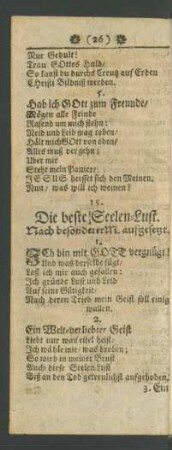 (26)
Nur Gedult!
Trau GOttes Huld/
So kanst du durchs Creutz auf Erden
CHristi Bildniß werden.
5.
Hab ich GOtt zum Freunde/
Mögen alle Feinde
Rasend um mich stehn:
Neid und Leid mag toben/
Hält mich GOtt von oben/
Alles muß vergehn;
Uber mir
Steht mein Panier/
JESUS herrscht sich den Meinen.
Nun/ was will ich weinen?
15.
Die beste Seelen-Lust.
Nach besonderer M. aufgesetzt.
1.
ICh bin mit GOTT vergnügt!
Und was derselbe fügt/
Laß ich mir auch gefallen:
Ich gründe Lust und Leid
Auf seine Gütigkeit/
Nach deren Trieb mein Geist soll einig
wallen.
2.
Ein Welt-verliebter Geist
Liebt nur was eitel heist/
Ich wähle mir/ was droben;
So wird in meiner Brust
Auch diese Seelen-Lust
Biß an den Tod gewenlichst aufgehoben.
3. Ein